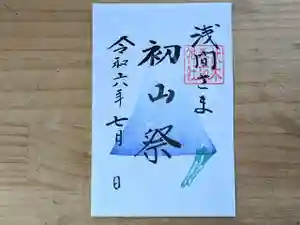 浅間さま
初山祭
令和六年 七月 日